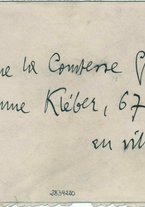 me la Comtesse G
nne Kléber, 67
en vil
2834220